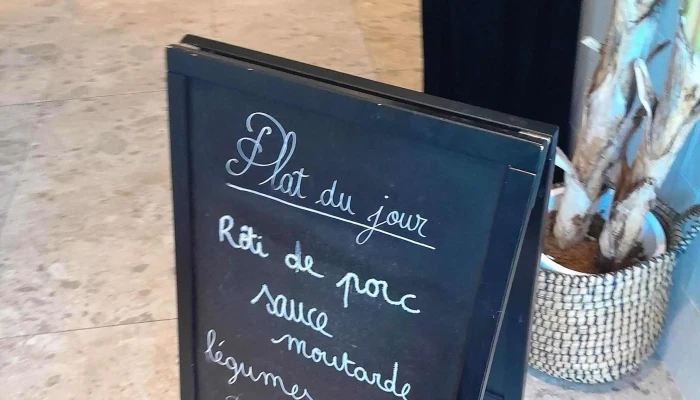 Plat du jour
Rôti de porc
sauce
moutarde
légumes